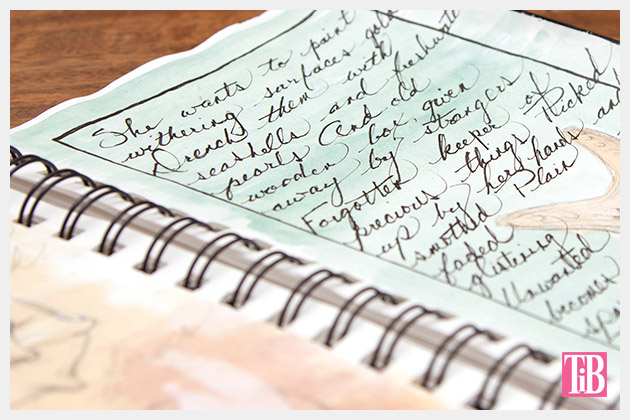 She wants to paint
withering surfaces gold
Drench them with
seashells and freshwater
pearls and old
wooden box given
away by strangers
Forgotten keeper of
precious things Picked
up by her hands and
smothed Plain
faded
glittering
Unwanted
becomes
TiB